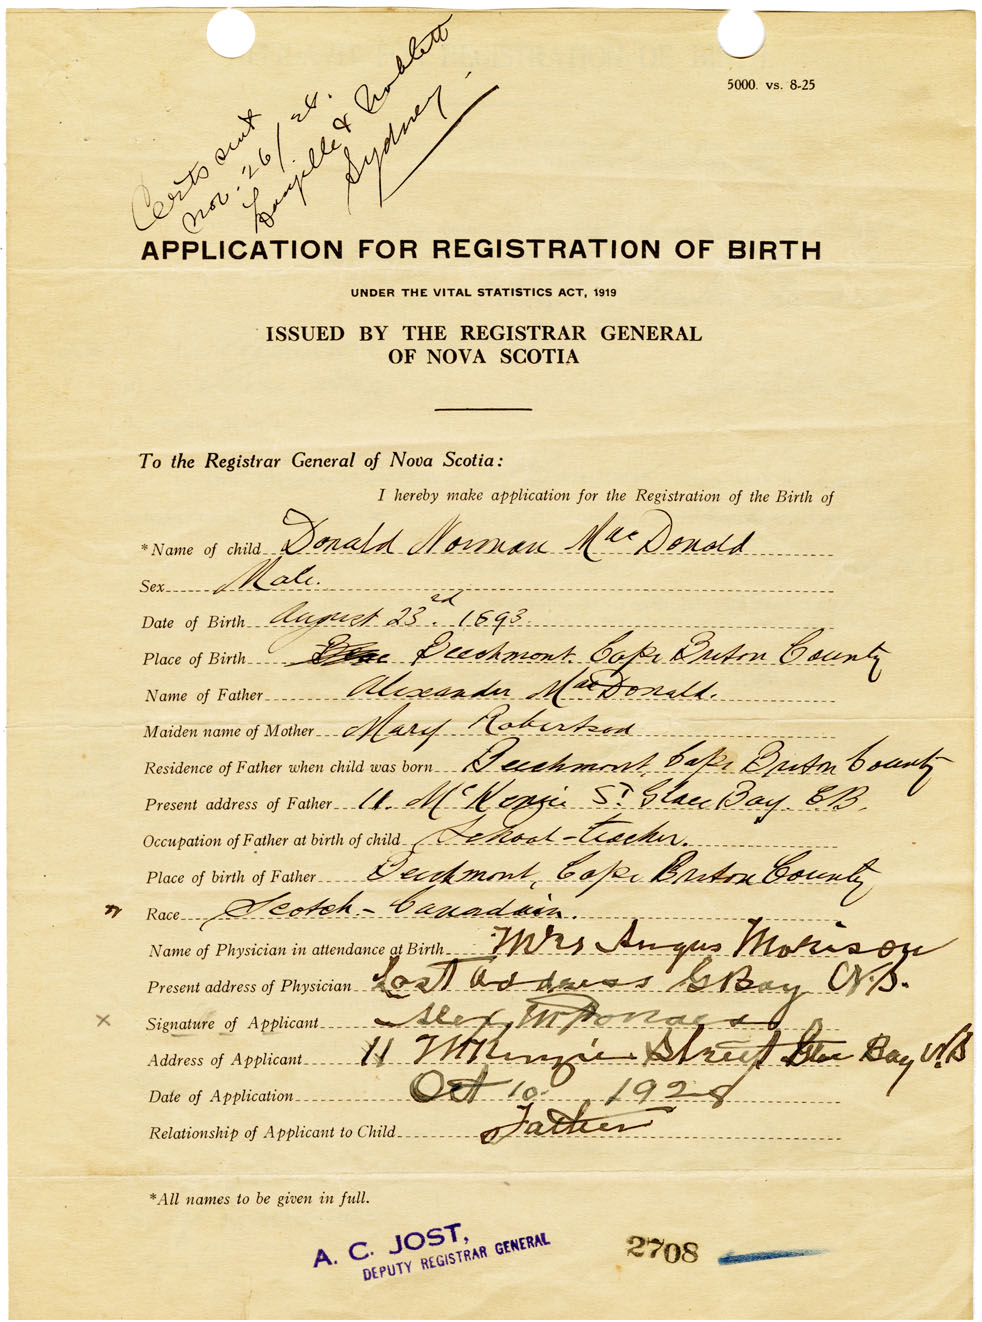 5000. vs. 8-25
Certs sent
Nov. 26/28.
& Noblett
Sydney
APPLICATION FOR REGISTRATION OF BIRTH
UNDER THE VITAL STATISTICS ACT, 1919
ISSUED BY THE REGISTRAR GENERAL
OF NOVA SCOTIA
To the Registrar General of Nova Scotia:
I hereby make application for the Registration of the Birth of
*Name of child Donald Norman MacDonald
Sex Male.
Date of Birth August 23rd. 1893
Place of Birth Beechmont. Cape Breton County
Name of Father Alexander MacDonald.
Maiden name of Mother Mary Robertson
Residence of Father when child was born Beechmont, Cape Breton County
Present address of Father 11. McKenzie St Glace Bay. C.B.
Occupation of Father at birth of child School-teacher.
Place of birth of Father Beechmont, Cape Breton County
Race Scotch-Canadain.
Name of Physician in attendance at Birth Mrs Angus Morison
Present address of Physician Last address G Bay N.S.
x Signature of Applicant Alex McDonald
Address of Applicant 11 McKenzie Street Glace Bay N.S
Date of Application Oct 10 1928
Relationship of Applicant to Child Father
*All names to be given in full.
A. C. JOST,
DEPUTY REGISTRAR GENERAL
2708